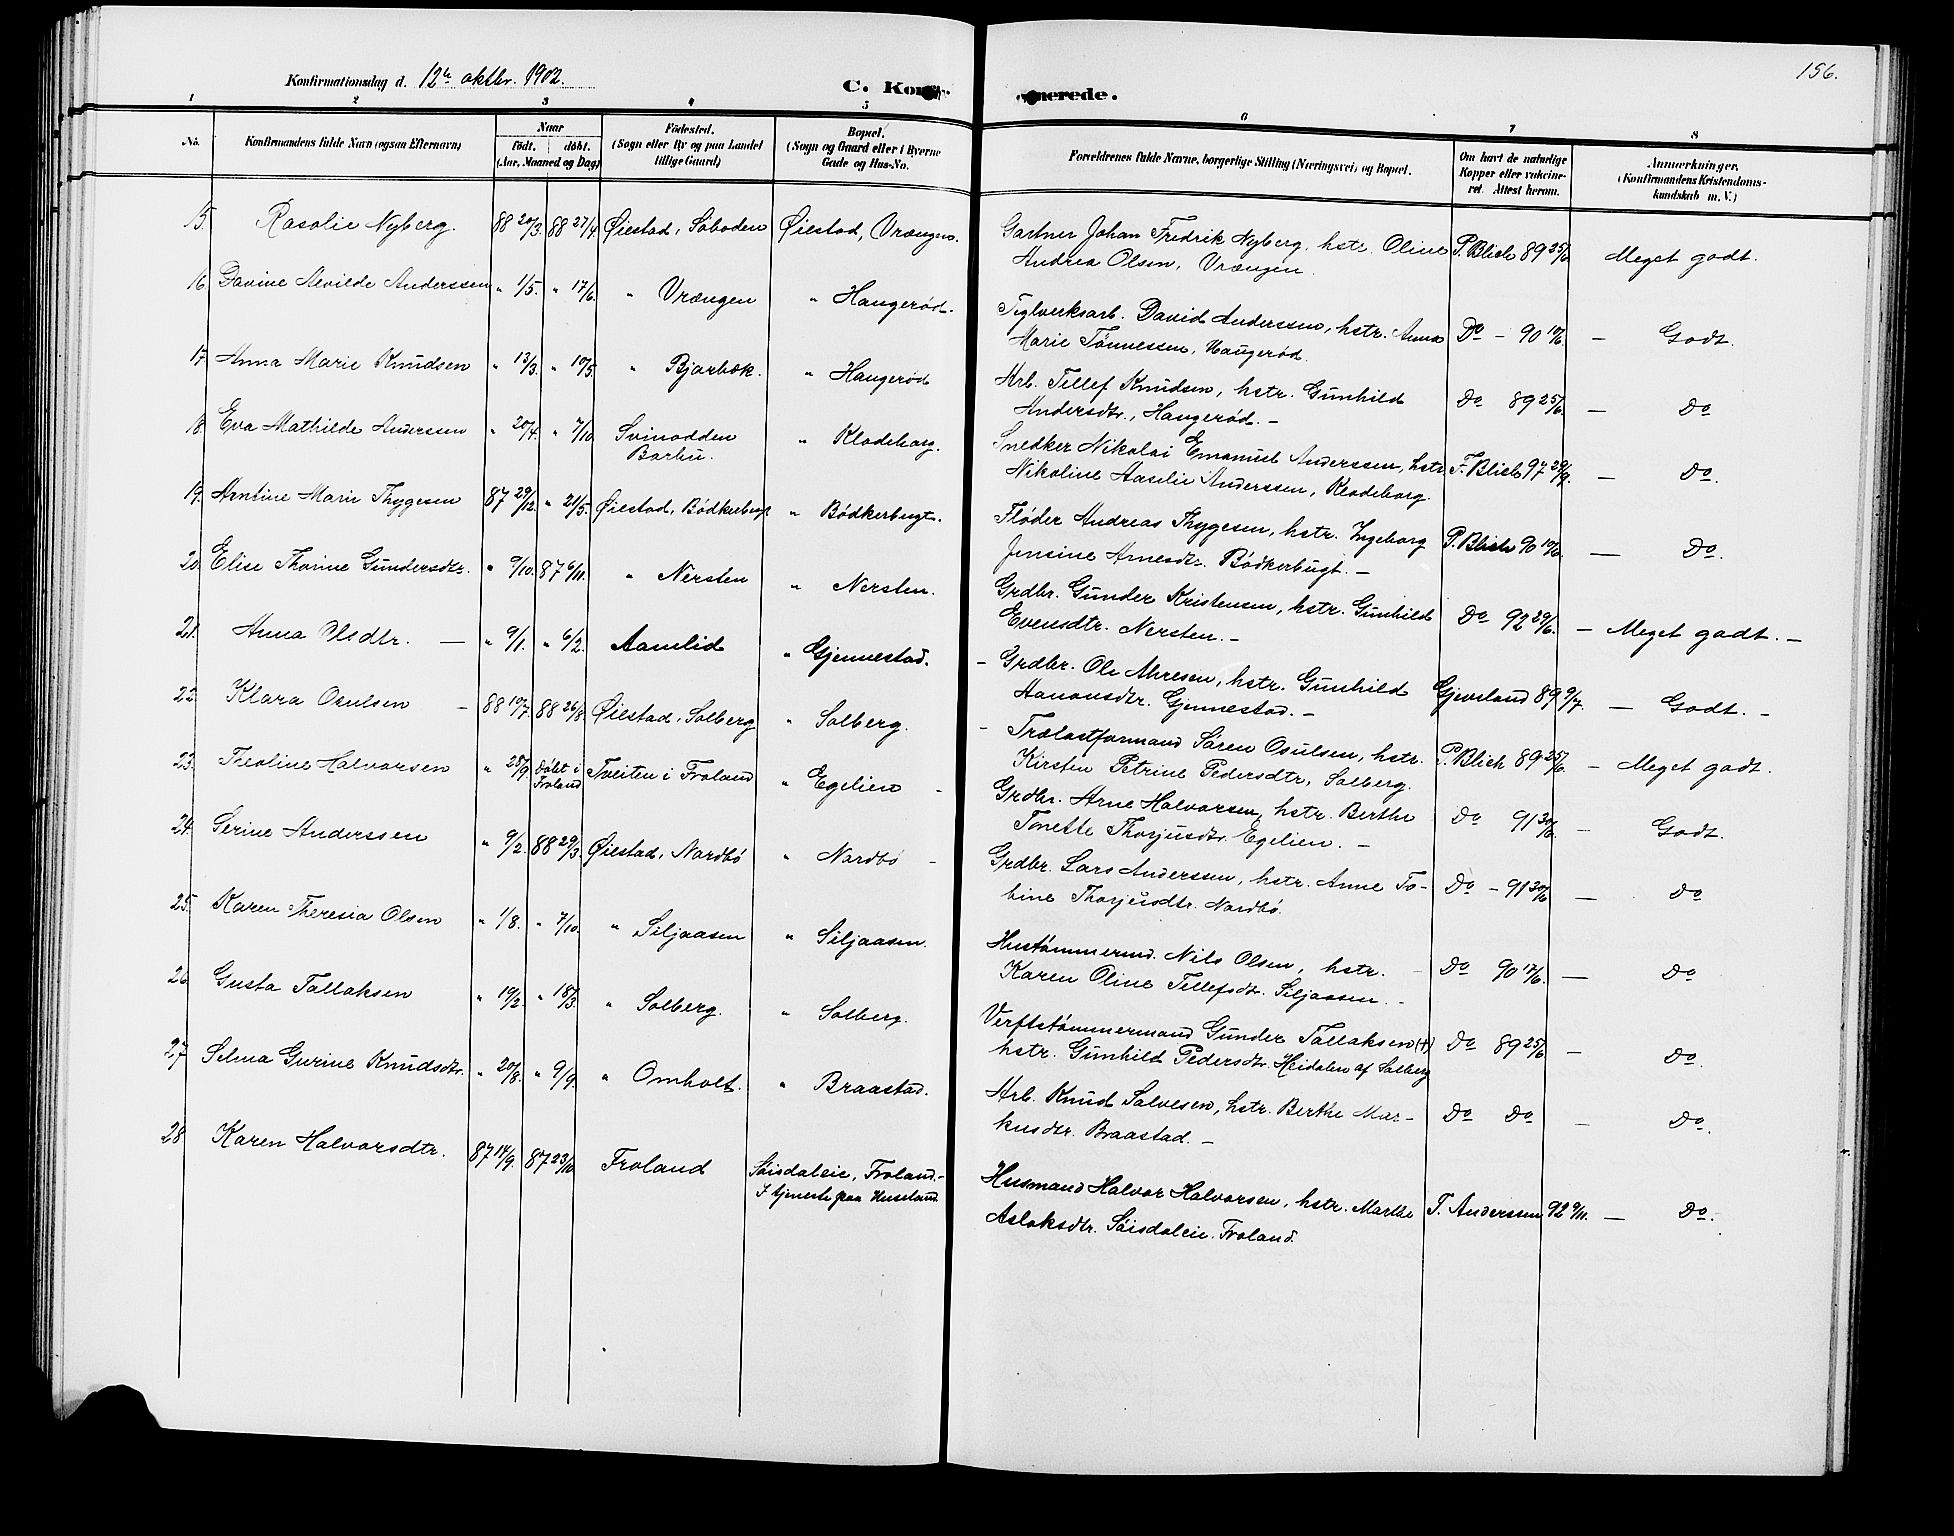 156.
Konfirmationsdag d. 12te oktbr. 1902.
C. Konfirmerede.
1 2 3 4 5 6 7 8
No. Konfirmandens fulde Navn (ogsaa Efternavn) Naar født. døbt. (Aar, Maaned og Dag) Fødested. (Sogn eller By og paa Landet tillige Gaard) Bopæl. (Sogn og Gaard eller i Byerne Gade og Hus-No. Forældrenes fulde Navne, borgerlige Stilling (Næringsvei) og Bopæl. Om havt de naturlige Kopper eller vakcineret. Attest herom. Anmærkninger. (Konfirmandens Kristendomskundskab m. V.)
15. Rasolie Nyberg. 88 20/3. 88 27/4. Øiestad, Søboden Øiestad, Vrængen. Gartner Johan Fredrik Nyberg, hstr. Oline P. Blich 89 25/6 Meget godt.
Andrea Olsen, Vrængen.
16. Davine Alvilde Anderssen " 1/5. " 17/6. " Vrængen " Haugerød. Teglverksarb. David Anderssen, hstr. Anna Do - 90 10/6. — Godt.
Marie Tønnessen, Haugerød.
17. Anna Marie Knudsen " 13/3. " 10/5. " Bjorbæk. " Haugerød Arb. Tellef Knudsen, hstr. Gunhild Do 89 25/6. — Do
Andersdtr., Haugerød. -
18. Eva Mathilde Andersen " 20/4. " 7/10. Svinodden Barbu. " Klodeborg. Snedker Nikolai Emanuel Anderssen, hstr. F. Blich 97 29/9. — Do.
Nikoline Aaselie Anderssen, Klodeborg.
19. Arntine Marie Thygesen 87 29/12. " 21/5. Øiestad, Bødkerbugt " Bødkerbugt. Fløder Andreas Thygesen, hstr. Ingeborg P. Blich 90 10/6. — Do.
Jensine Arnesdtr. Bødkerbugt. -
20. Elise Thorine Gundersdtr. " 9/10. 87 6/11. " Nersten " Nersten. Grdbr. Gunder Kristensen, hstr. Gunhild Do 92 29/6. — Meget godt. -
Evensdtr. Nersten. -
21. Anna Olsdtr. — " 9/1. " 6/2. Aamlid " Gjennestad. - Grdbr. Ole Ahresen, hstr. Gunhild Gjevsland 89 9/7. — Godt. -
Aanonsdtr. Gjennestad. -
22. Klara Osulsen - 88 10/7. 88 26/8. Øiestad, Solberg " Solberg. - Trælastformand Søren Osulsen, hstr. P. Blich 89 25/6. — Meget godt.
Kirsten Petrine Pedersdtr, Solberg.
23. Theoline Halvorsen " 28/9. Døbt i Froland Tveiten i Froland " Egelien - Grdbr. Arne Halvorsen, hstr. Berthe Do 91 30/6. — Godt.
Tonette Thorjusdtr. Egelien. -
24. Serine Anderssen " 9/2. 88 29/3. Øiestad, Nordbø " Nordbø - Grdbr. Lars Anderssen, hstr. Anne To- Do - 91 30/6. — Do
bine Thorjusdtr. Nordbø.
25. Karen Theresia Olsen " 1/8. " 7/10. " Siljaasen " Siljaasen. Hustømmermd. Nils Olsen, hstr. Do 90 17/6. — Do
Karen Oline Tellefsdtr. Siljaasen. -
26. Gusta Tallaksen " 19/2. " 18/3 " Solberg. " Solberg. Verftstømmermand Gunder Tallaksen (+) Do 89 25/6 — Do.
hstr. Gunhild Pedersdtr. Heidalen af Solberg
27. Selma Gurine Knudsdtr. " 20/8. " 9/9. " Omholt. " Braastad. Arb. Knud Salvesen, hstr. Berthe Mar- Do Do — Do.
kusdtr. Braastad. -
28. Karen Halvorsdtr. 87 14/9. 87 23/10 Froland Søisdaleie, Froland.- I tjeneste paa Huseland Husmand Halvor Halvorsen, hstr. Marthe T. Anderssen 92 9/11. — Do.
Aslaksdtr. Søisdaleie. Froland.